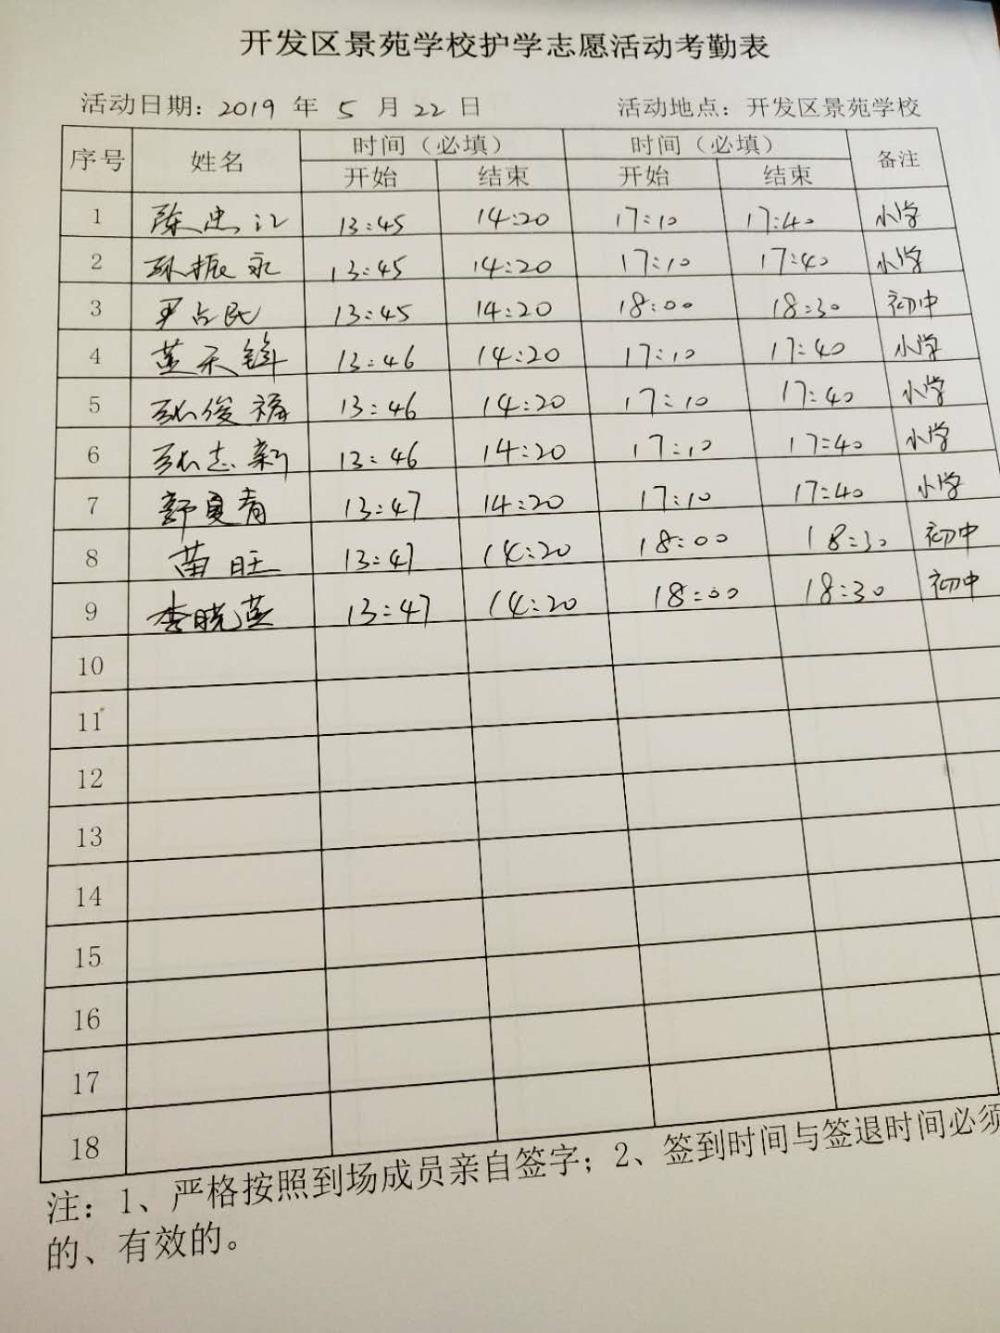 开发区景苑学校护学志愿活动考勤表
活动日期：2019 年 5 月 22 日 活动地点：开发区景苑学校
序号 姓名 时间（必填） 时间（必填） 备注
开始 结束 开始 结束
1 陈忠江 13:45 14:20 17:10 17:40 小学
2 孙振永 13:45 14:20 17:10 17:40 小学
3 尹占民 13:45 14:20 18:00 18:30 初中
4 黄天锋 13:46 14:20 17:10 17:40 小学
5 张俊福 13:46 14:20 17:10 17:40 小学
6 张志新 13:46 14:20 17:10 17:40 小学
7 舒良青 13:47 14:20 17:10 17:40 小学
8 苗旺 13:47 14:20 18:00 18:30 初中
9 李晓英 13:47 14:20 18:00 18:30 初中
10
11
12
13
14
15
16
17
18
注：1、严格按照到场成员亲自签字；2、签到时间与签退时间必须
的、有效的。